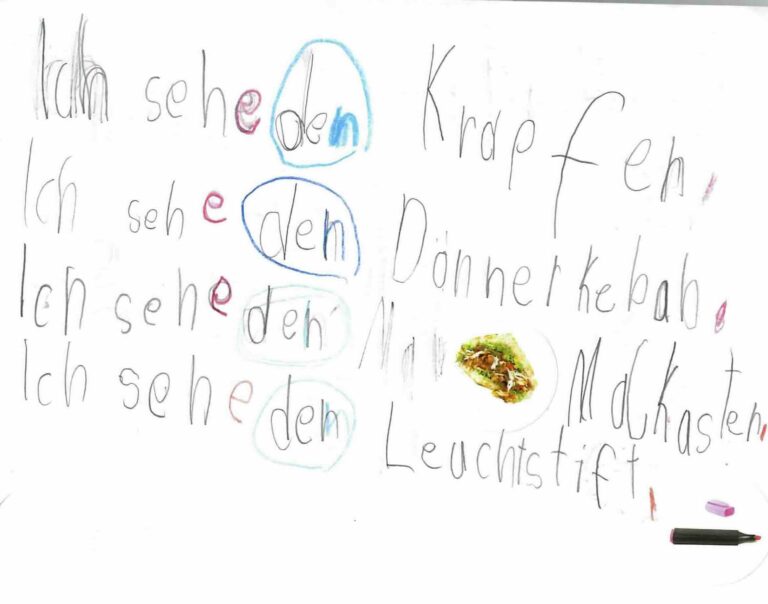 Ich sehe den Krapfen.
Ich sehe den Dönnerkebab.
Ich sehe den Malkasten.
Ich sehe den Leuchtstift.